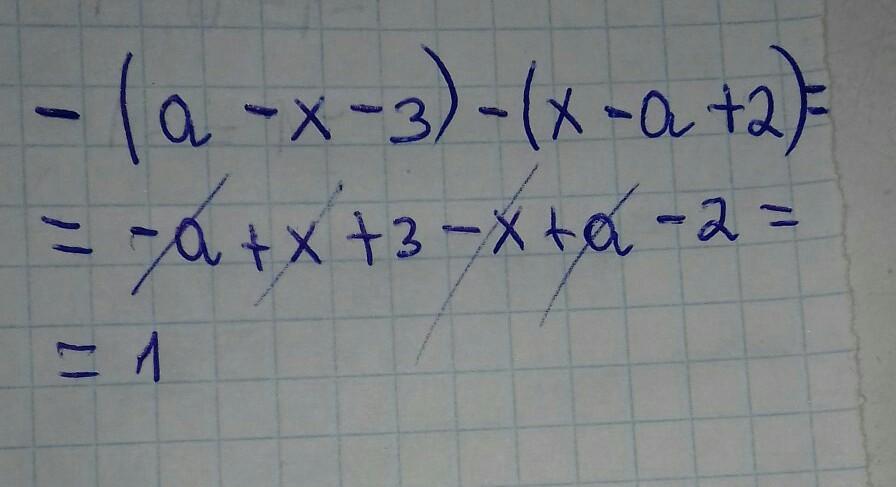 - (a - x - 3) - (x - a + 2) =
= - a + x + 3 - x + a - 2 =
= 1